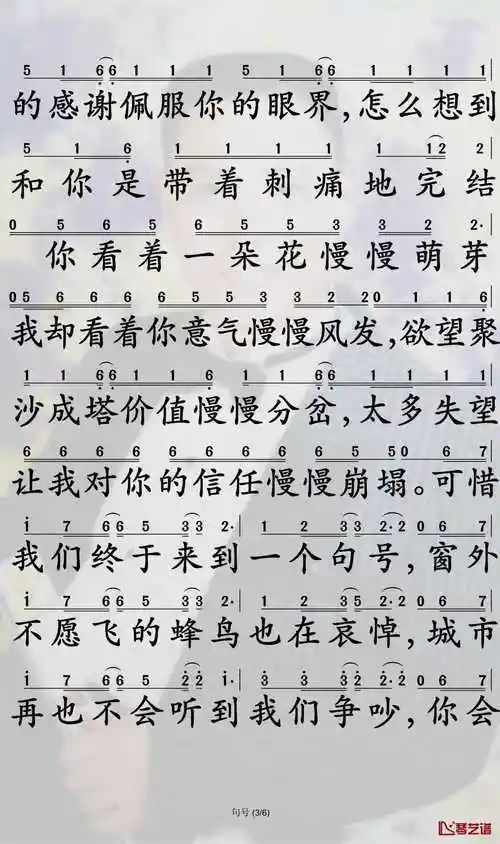 5 1 6 6 1 1 1 5 1 6 6 1 1 1 1
的感谢佩服你的眼界,怎么想到
5 1 6 1 1 1 1 1 1 12 2
和你是带着刺痛地完结
0 5 6 5 6 5 5 3 3 2 2·
你看着一朵花慢慢萌芽
05 6 6 6 6 6 5 5 3 3 2 20 1 1 6
我却看着你意气慢慢风发,欲望聚
1 1 1 1 1 6 1 1 6 1 1 1 1
沙成塔价值慢慢分岔,太多失望
6 6 6 6 6 6 6 6 5 6 5 50 6 7
让我对你的信任慢慢崩塌。可惜
i 7 6 6 5 3 3 2· 1 2 3 3 2·2 0 6 7
我们终于来到一个句号,窗外
i 7 6 6 5 3 3 2· 1 2 3 3 2·2 0 6 7
不愿飞的蜂鸟也在哀悼,城市
i 7 6 6 5 2 2 i· 3 3 3 2·2 0 6 7
再也不会听到我们争吵,你会
句号 (3/6)
琴艺谱